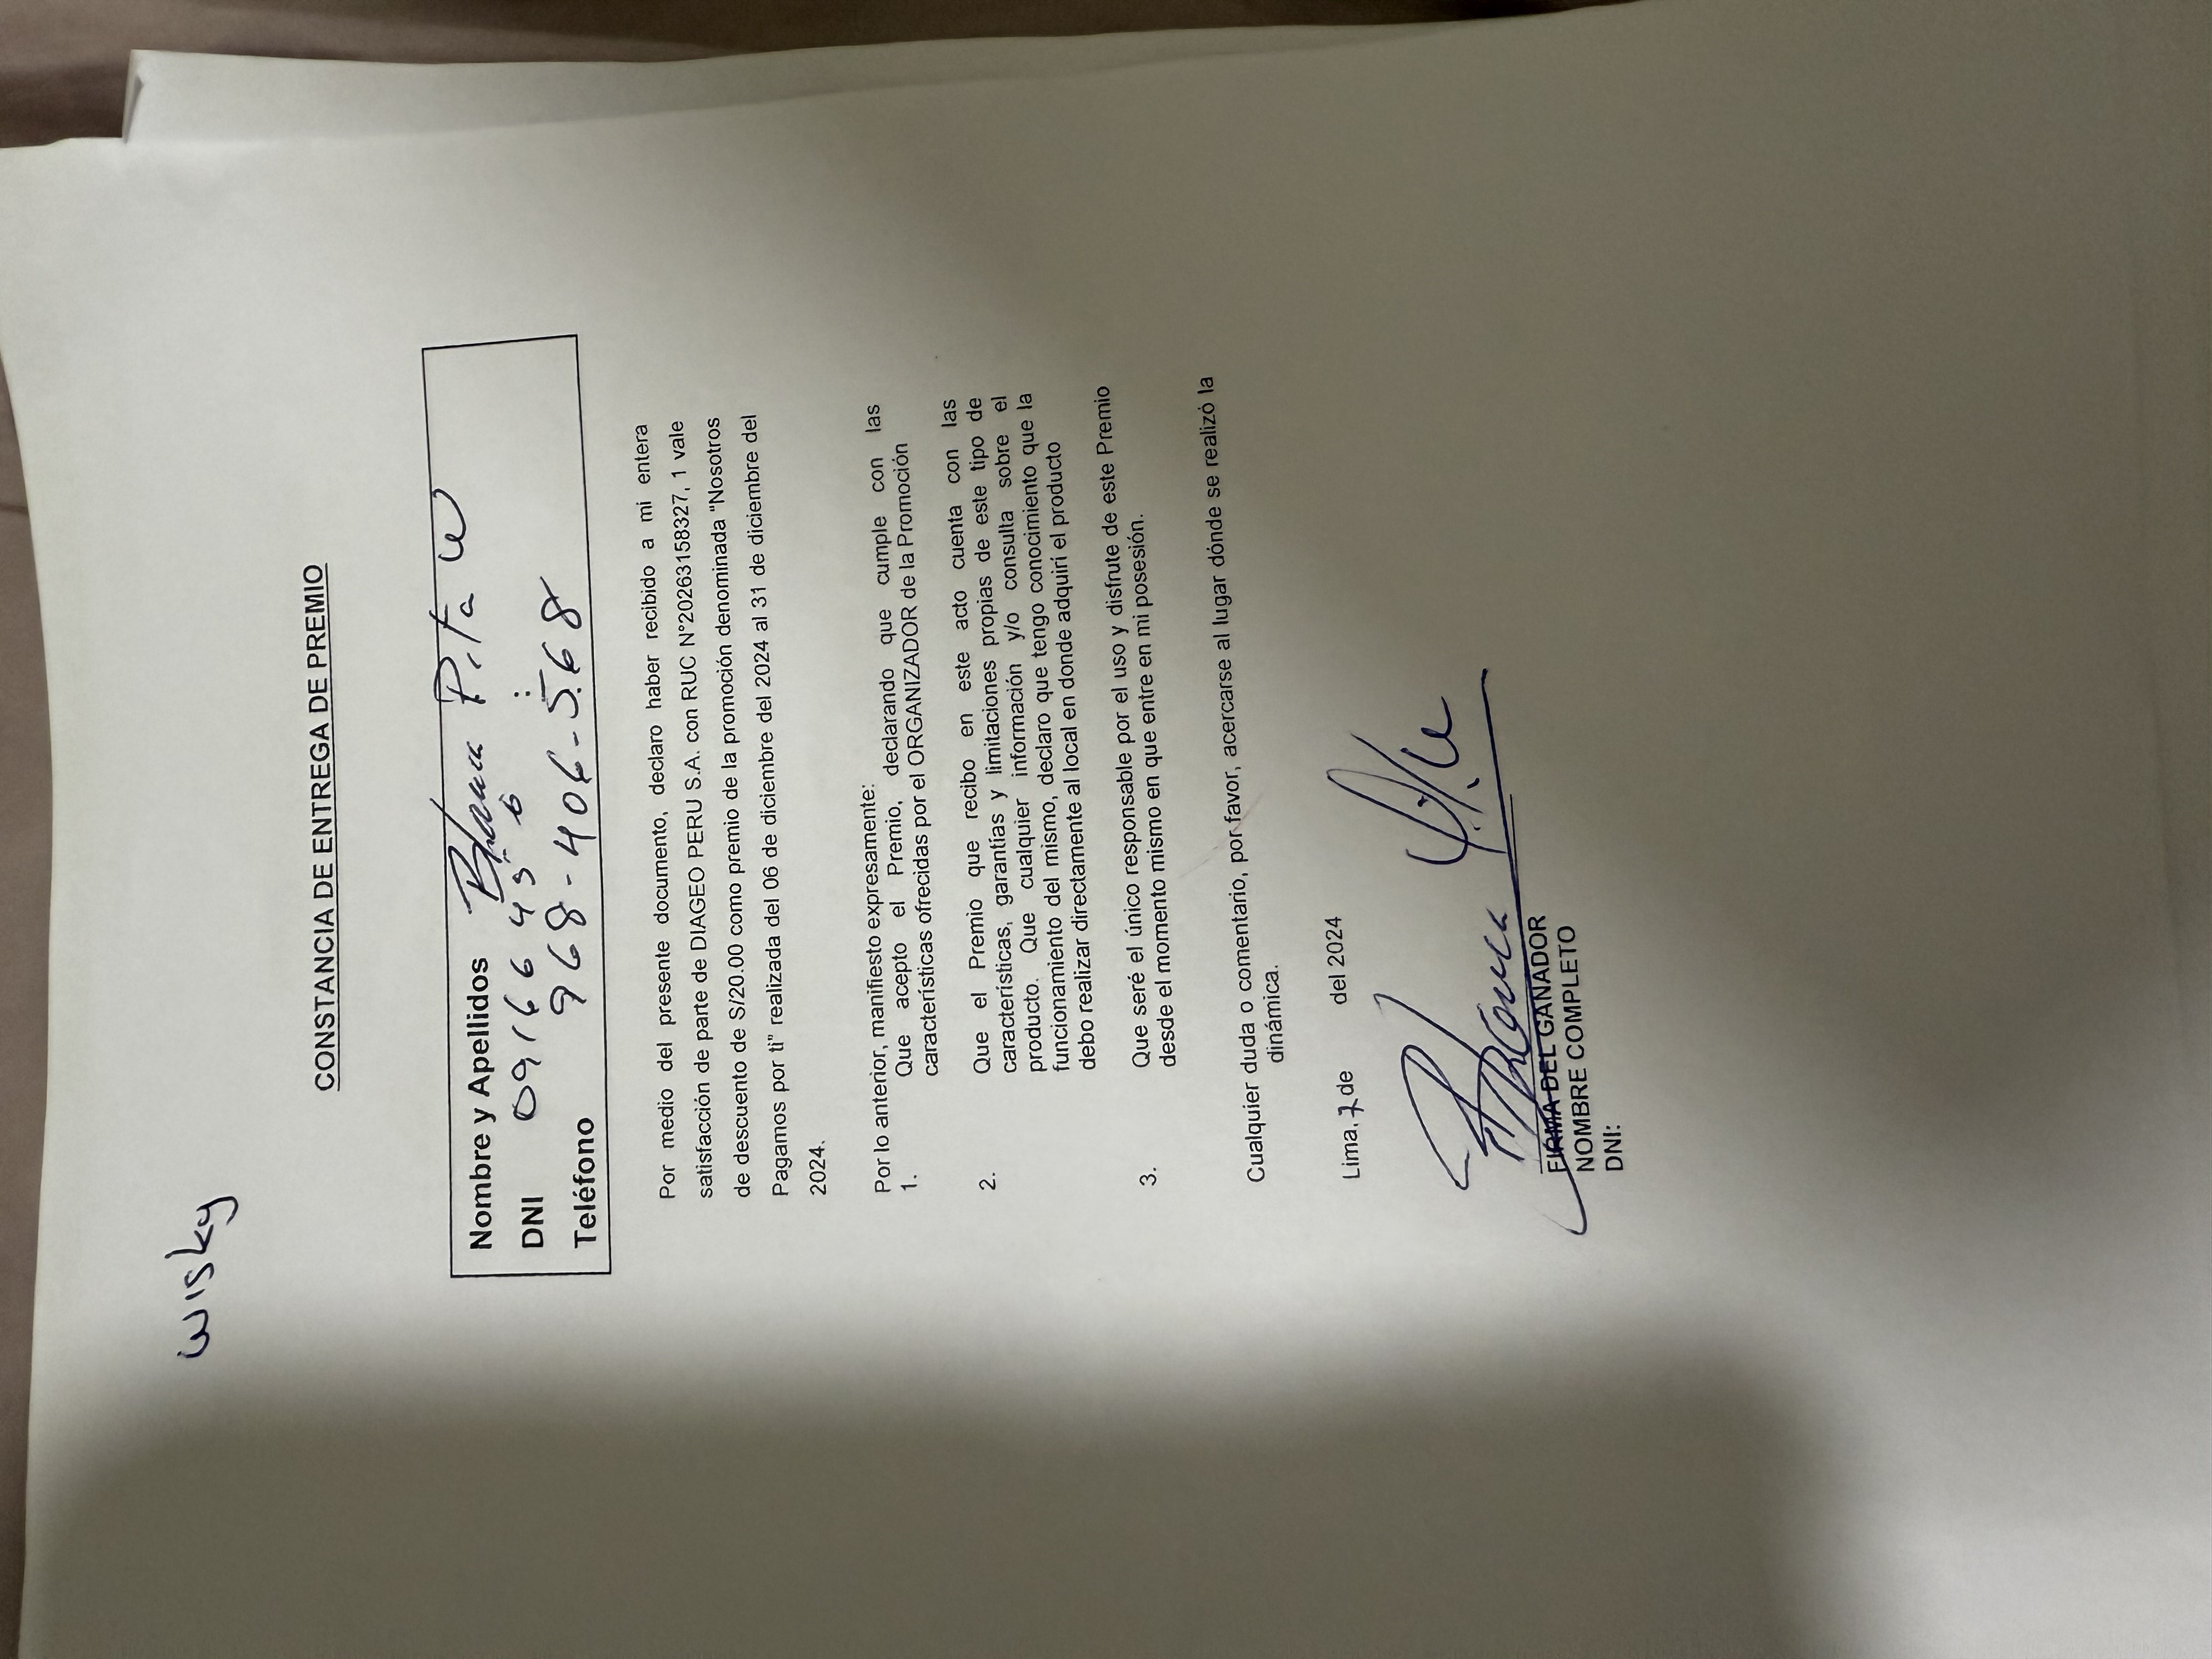 wisky
CONSTANCIA DE ENTREGA DE PREMIO
Nombre y Apellidos Blanca Pita W
DNI 09166456 :
Teléfono 968-406-568
Por medio del presente documento, declaro haber recibido a mi entera
satisfacción de parte de DIAGEO PERU S.A. con RUC N°20263158327, 1 vale
de descuento de S/20.00 como premio de la promoción denominada "Nosotros
Pagamos por ti" realizada del 06 de diciembre del 2024 al 31 de diciembre del
2024.
Por lo anterior, manifiesto expresamente:
1. Que acepto el Premio, declarando que cumple con las
características ofrecidas por el ORGANIZADOR de la Promoción
2. Que el Premio que recibo en este acto cuenta con las
características, garantías y limitaciones propias de este tipo de
producto. Que cualquier información y/o consulta sobre el
funcionamiento del mismo, declaro que tengo conocimiento que la
debo realizar directamente al local en donde adquirí el producto
3. Que seré el único responsable por el uso y disfrute de este Premio
desde el momento mismo en que entre en mi posesión.
Cualquier duda o comentario, por favor, acercarse al lugar dónde se realizó la
dinámica.
Lima, 7 de del 2024
Blanca Pita
FIRMA DEL GANADOR
NOMBRE COMPLETO
DNI: